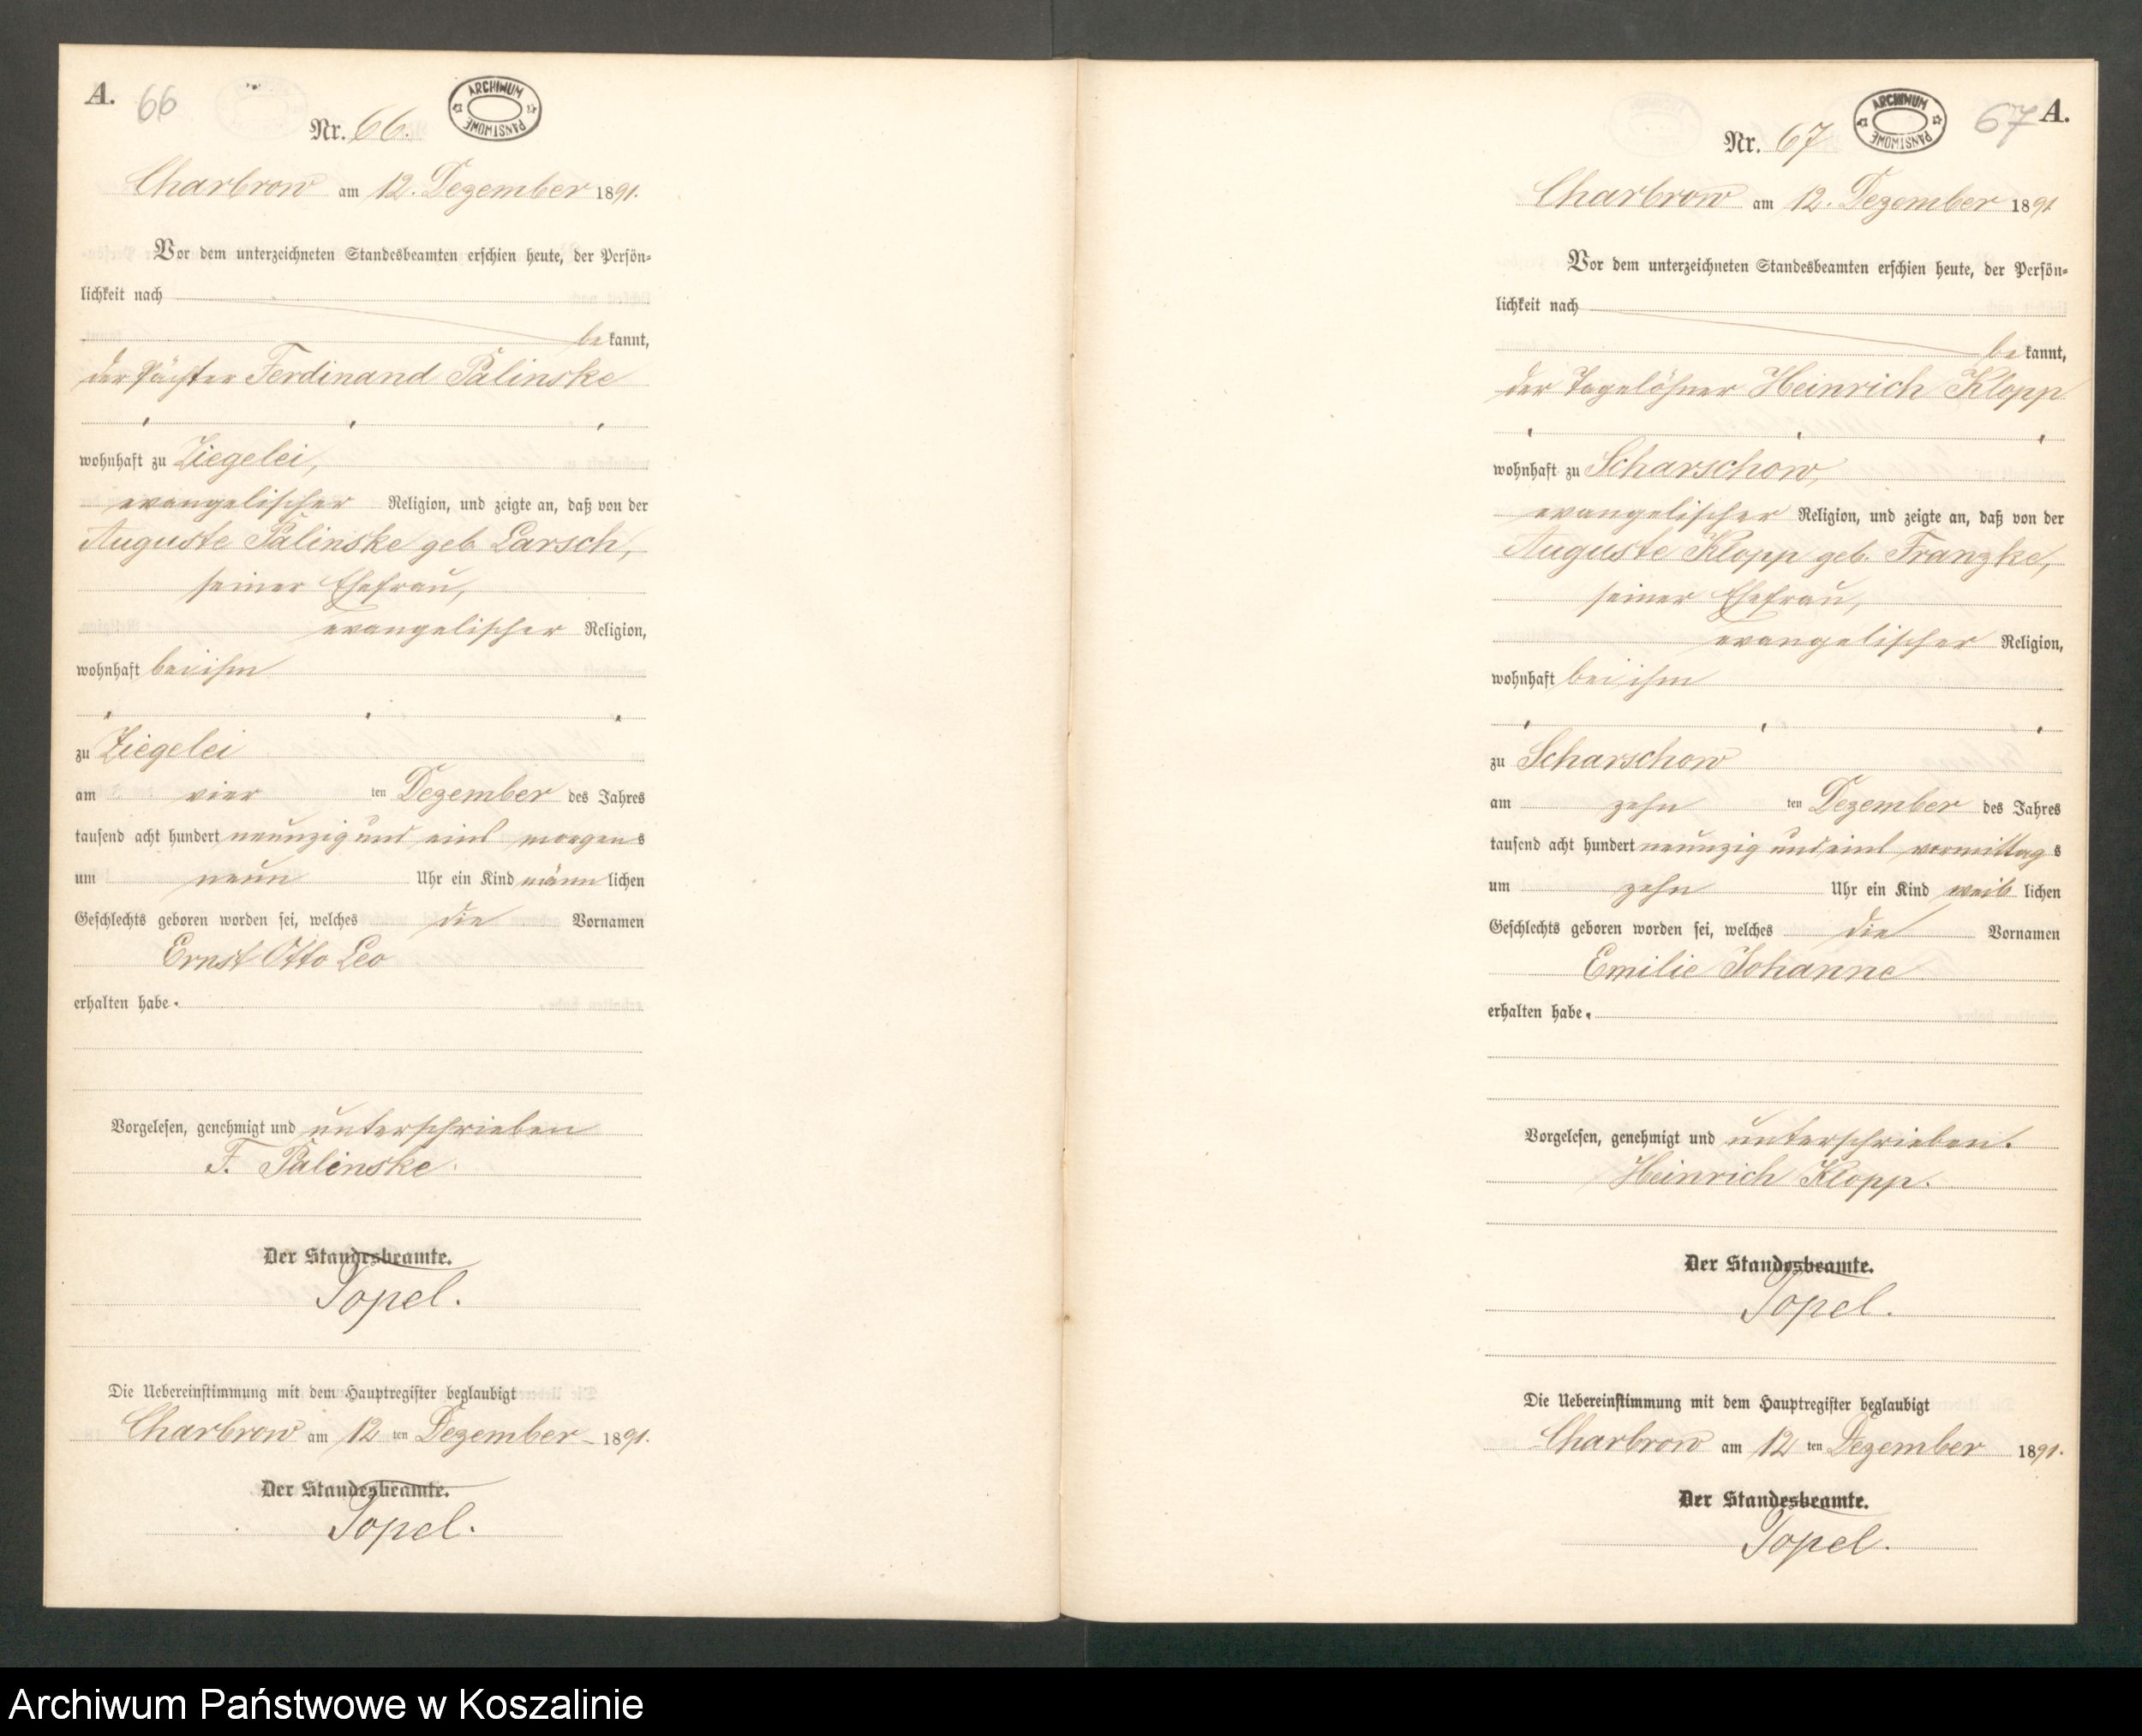 A. 66
ARCHIWUM PAŃSTWOWE
Nr. 66.
Charbrow am 12. Dezember 1891.
Vor dem unterzeichneten Standesbeamten erschien heute, der Persön=
lichkeit nach
be kannt,
der Pächter Ferdinand Palinske
wohnhaft zu Ziegelei,
evangelischer Religion, und zeigte an, daß von der
Auguste Palinske geb. Larsch,
seiner Ehefrau,
evangelischer Religion,
wohnhaft bei ihm
zu Ziegelei
am vier ten Dezember des Jahres
tausend acht hundert neunzig und eins morgens
um neun Uhr ein Kind männlichen
Geschlechts geboren worden sei, welches die Vornamen
Ernst Otto Leo
erhalten habe.
Vorgelesen, genehmigt und unterschrieben
F. Palinske.
Der Standesbeamte.
Topel.
Die Uebereinstimmung mit dem Hauptregister beglaubigt
Charbrow am 12 ten Dezember 1891.
Der Standesbeamte.
Topel.
67 A.
ARCHIWUM PAŃSTWOWE
Nr. 67
Charbrow am 12. Dezember 1891
Vor dem unterzeichneten Standesbeamten erschien heute, der Persön=
lichkeit nach
be kannt,
der Tagelöhner Heinrich Klopp
wohnhaft zu Scharschow,
evangelischer Religion, und zeigte an, daß von der
Auguste Klopp geb. Franzke,
seiner Ehefrau,
evangelischer Religion,
wohnhaft bei ihm
zu Scharschow
am zehn ten Dezember des Jahres
tausend acht hundert neunzig und eins vormittags
um zehn Uhr ein Kind weiblichen
Geschlechts geboren worden sei, welches die Vornamen
Emilie Johanne
erhalten habe.
Vorgelesen, genehmigt und unterschrieben.
Heinrich Klopp.
Der Standesbeamte.
Topel.
Die Uebereinstimmung mit dem Hauptregister beglaubigt
Charbrow am 12 ten Dezember 1891.
Der Standesbeamte.
Topel.
Archiwum Państwowe w Koszalinie